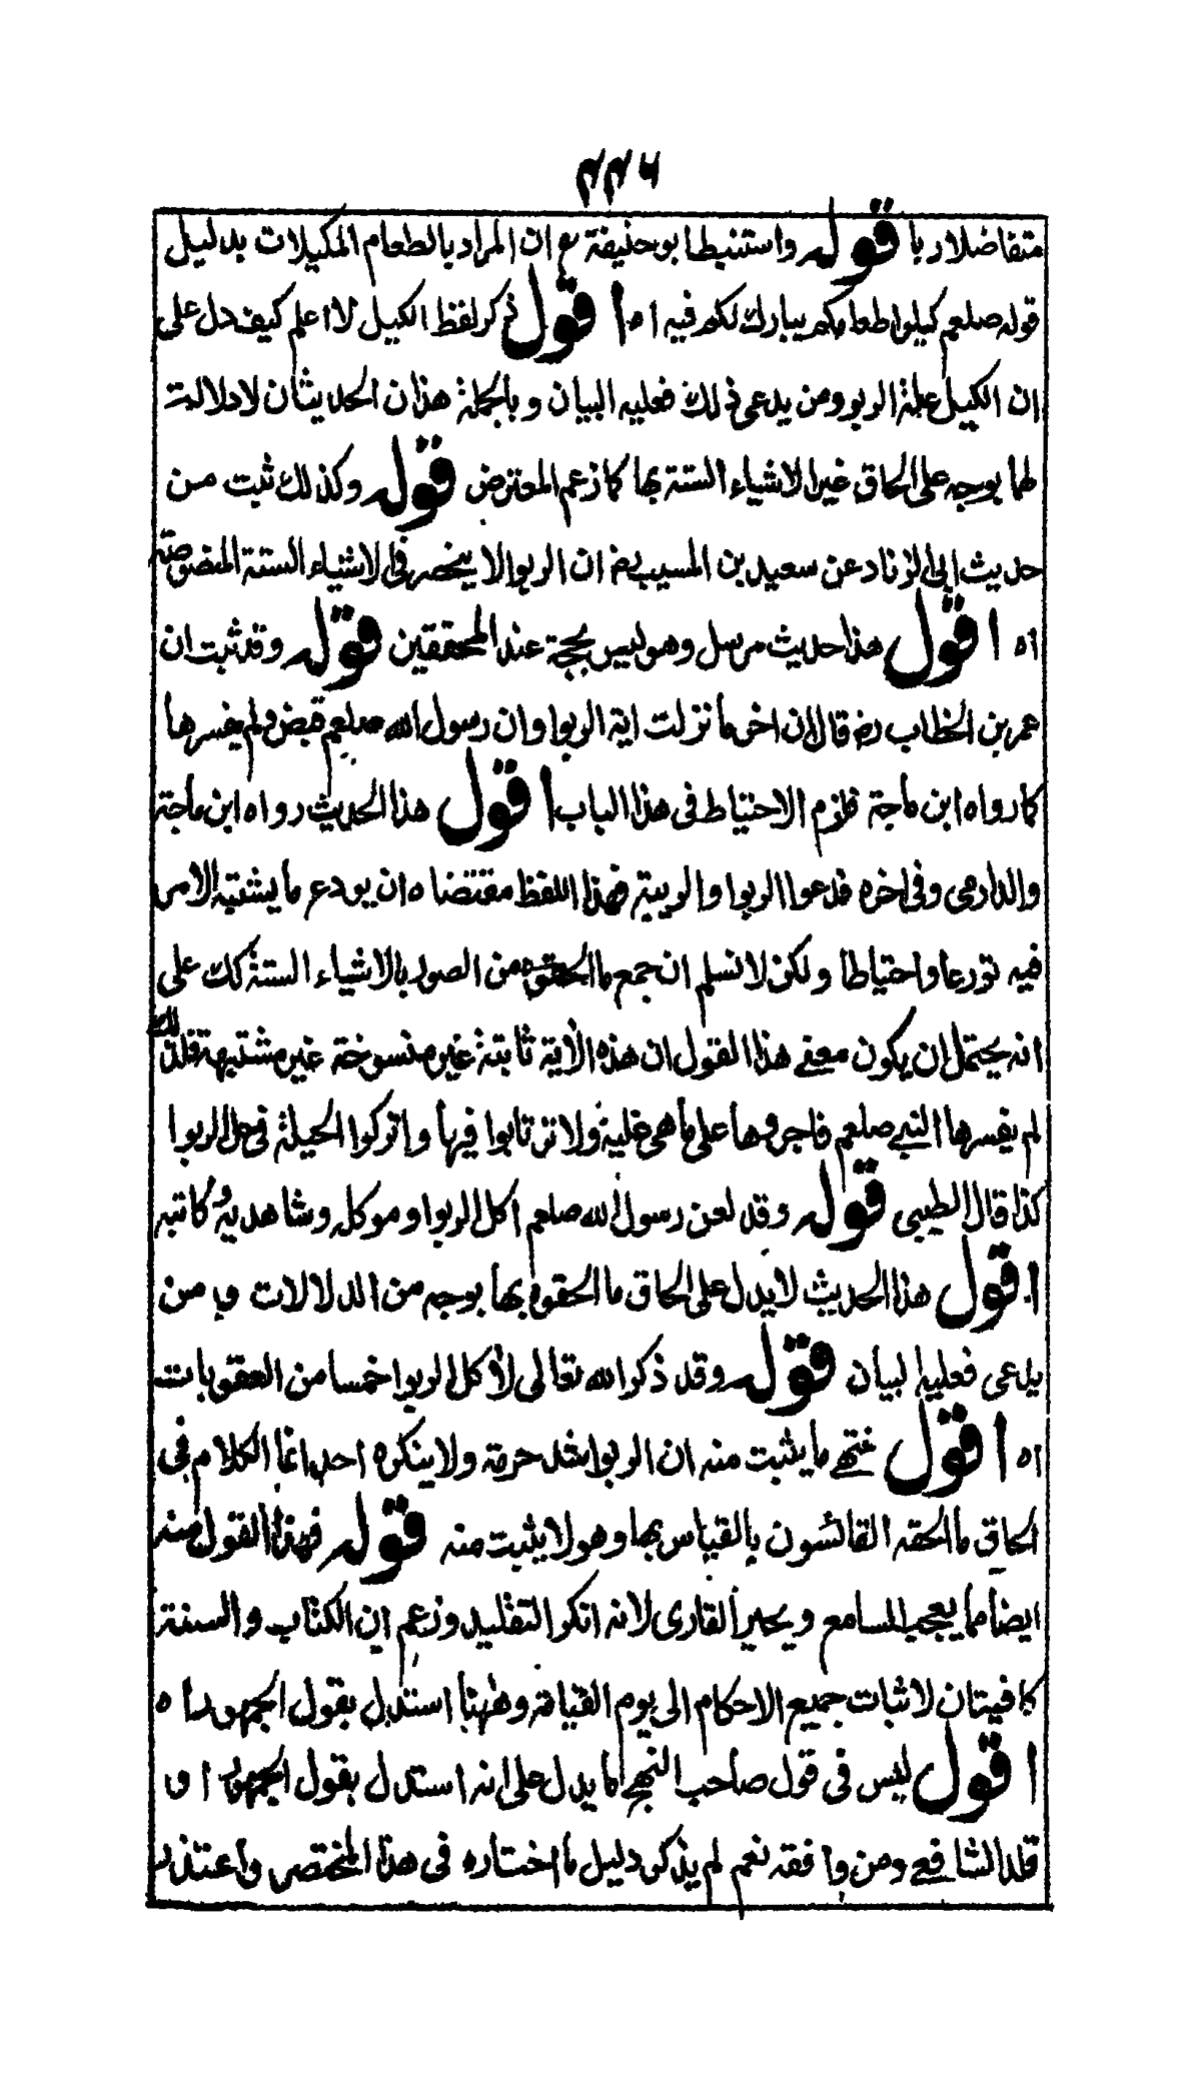 ۲۲۶
متفاضلا ربا قوله واستنبط ابو حنيفة رح ان المراد بالطعام المكيلات بدليل
قوله صلعم كيلوا طعامكم يبارك لكم فيه اه اقول ذكر لفظ الكيل لا اعلم كيف دل على
ان الكيل علة الربو ومن يدعى ذلك فعليه البيان و بالجملة هذان الحديثان لا دلالة
لهما بوجه على الحاق غير الاشياء الستة بها كما زعم المعترض قوله وكذلك ثبت من
حديث ابى الزناد عن سعيد بن المسيب رض ان الربوا لا ينحصر فى الاشياء الستة المنصوصة
اه اقول هذا حديث مرسل وهو ليس بحجة عند المحققين قوله وقد ثبت ان
عمر بن الخطاب رض قال ان اخر ما نزلت اية الربوا وان رسول الله صلعم قبض ولم يفسرها
كما رواه ابن ماجة فلزم الاحتياط فى هذا الباب اقول هذا الحديث رواه ابن ماجة
والدارمى وفى اخره فدعوا الربوا والريبة فهذا اللفظ مقتضاه ان يودع ما يشتبه الامر
فيه تورعا واحتياطا ولكن لا نسلم ان جمع ما الحقوه من الصور بالاشياء الستة كك على
انه يحتمل ان يكون معنى هذا القول ان هذه الاية ثابتة غير منسوخة غير مشتبهة فلذلك
لم يفسرها النبي صلعم فاجروها على ما هى عليه ولا ترتابوا فيها واتركوا الحيلة فى حل الربوا
كذا قال الطيبى قوله وقد لعن رسول الله صلعم اكل الربوا وموكله وشاهديه وكاتبه
اقول هذا الحديث لا يدل على الحاق ما الحقوه بها بوجه من الدلالات و من
يدعى فعليه البيان قوله وقد ذكر الله تعالى لأكل الربوا خمسا من العقوبات
اه اقول غتهى ما يثبت منه ان الربوا اشد حرمة ولا ينكره احد انما الكلام فى
الحاق ما الحقه القائسون بالقياس بها وهو لا يثبت منه قوله فهذا القول منه
ايضا مما يعجب السامع ويحير القارى لانه انكر التقليد وزعم ان الكتاب والسنة
كافيتان لاثبات جميع الاحكام الى يوم القيامة وههنا استدل بقول الجمهور اه
اقول ليس فى قول صاحب النهج ما يدل على انه استدل بقول الجمهور او
قلد الشافعي ومن وافقه نعم لم يذكر دليل ما اختاره فى هذا المختصر واعتذر